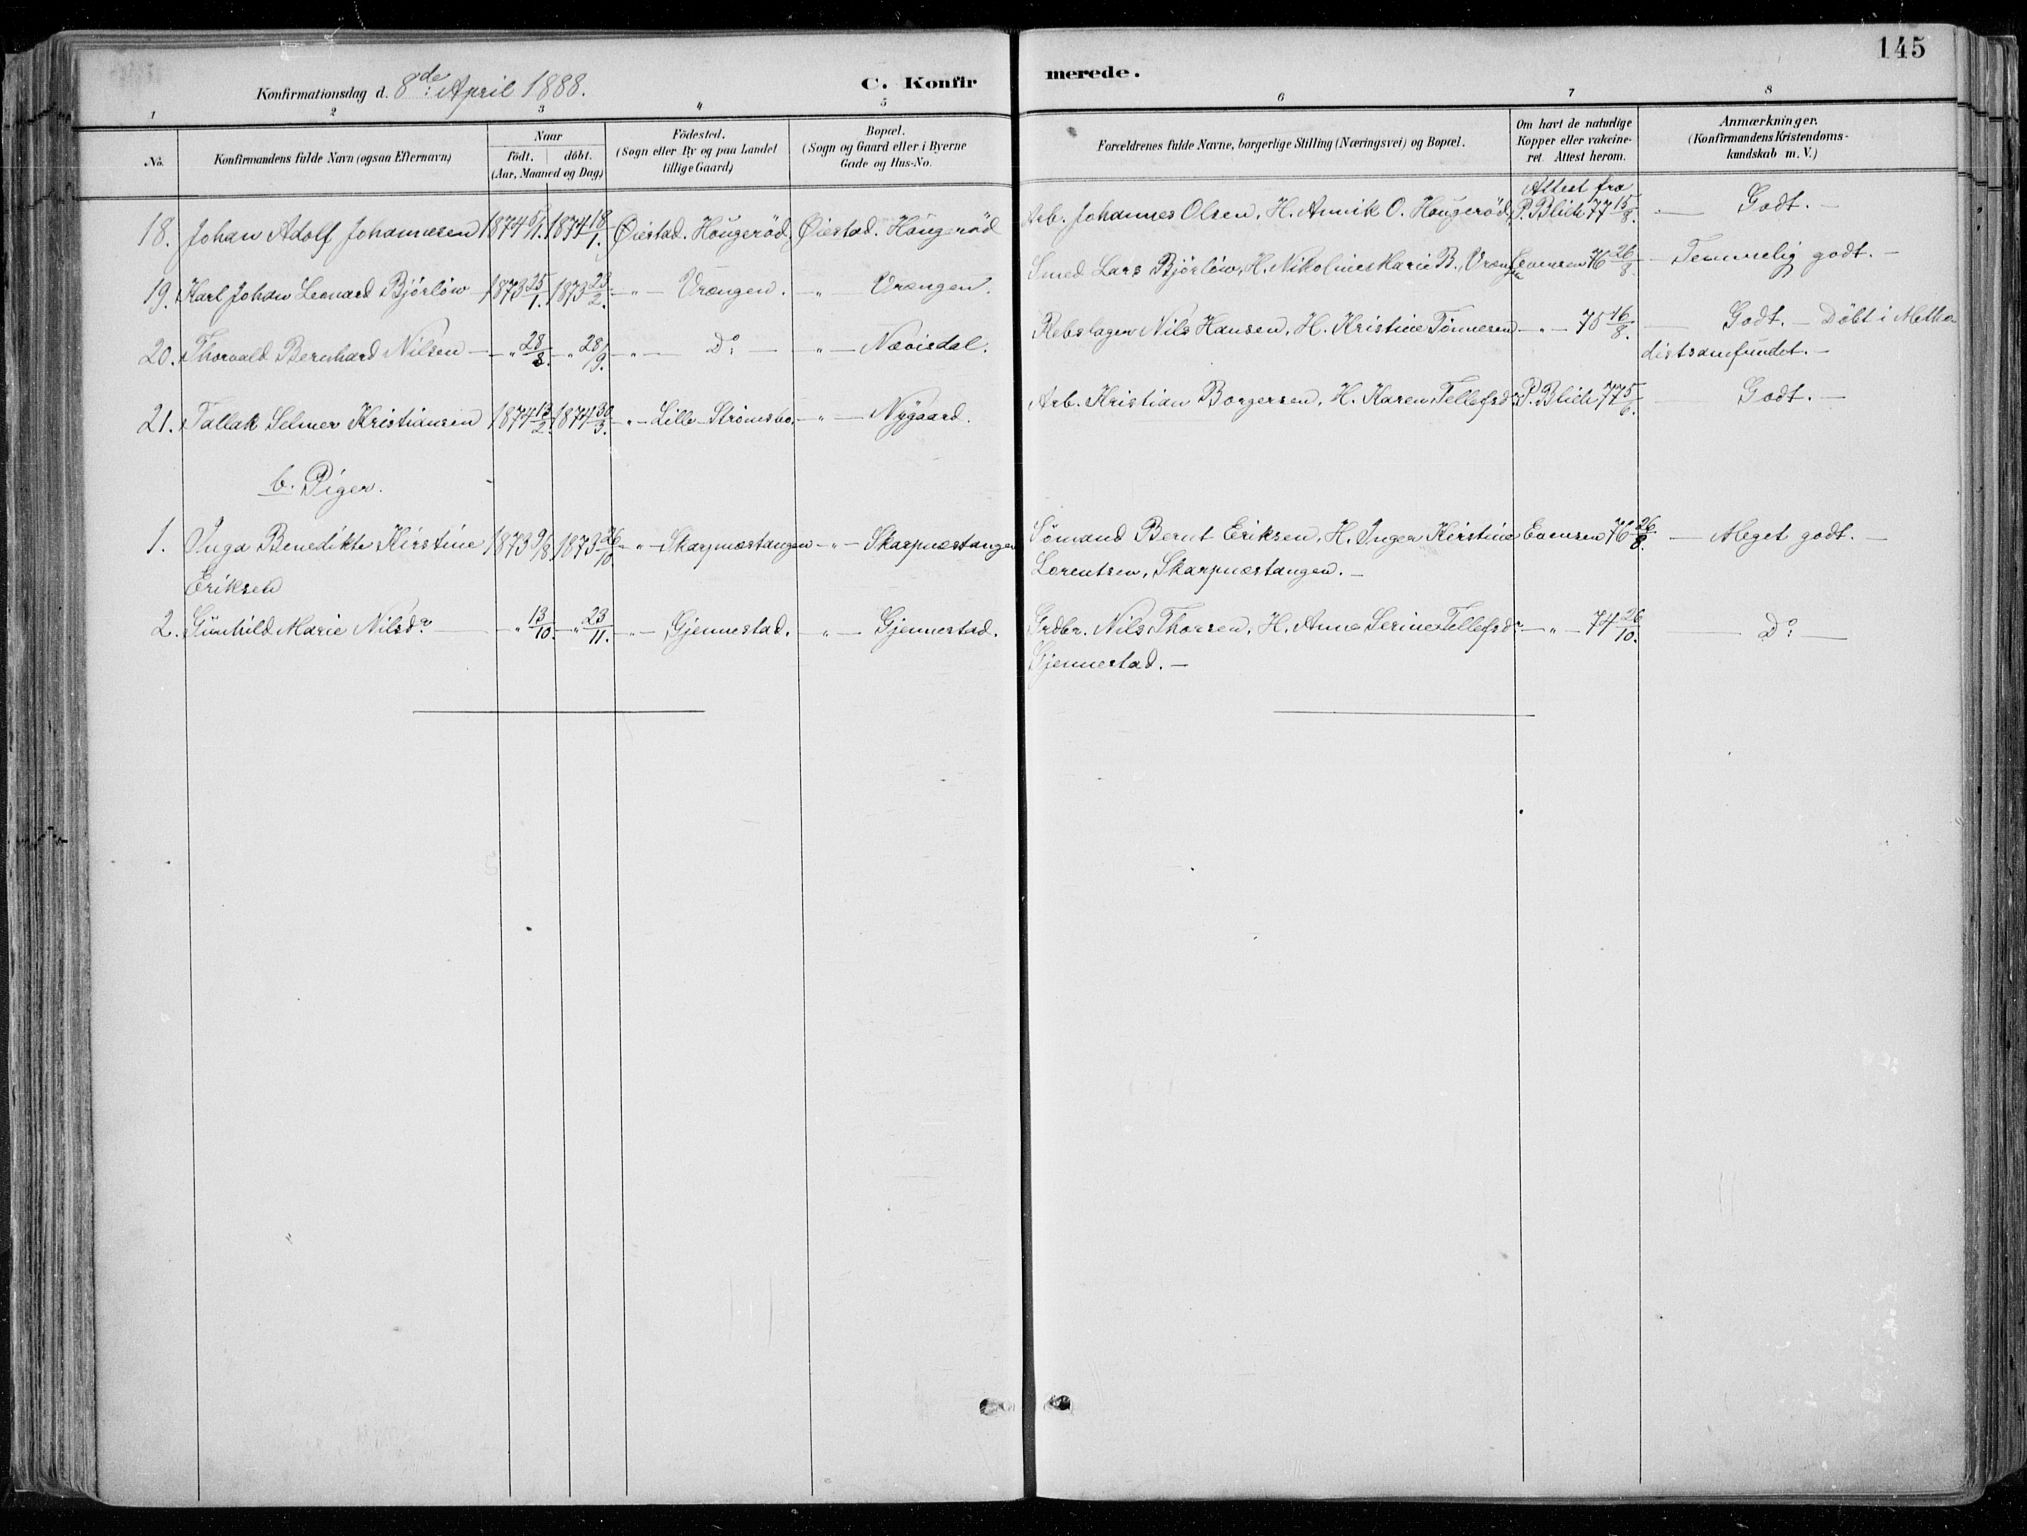 145
Konfirmationsdag d. 8de April 1888.
C. Konfirmerede.
1 2 3 4 5 6 7 8
No.
Konfirmandens fulde Navn (ogsaa Efternavn)
Naar
födt. döbt.
(Aar, Maaned og Dag)
Födested.
(Sogn eller By og paa Landet
tillige Gaard)
Bopæl.
(Sogn og Gaard eller i Byerne
Gade og Hus-No.
Forældrenes fulde Navne, borgerlige Stilling (Næringsvei) og Bopæl.
Om havt de naturlige
Kopper eller vakcine-
ret Attest herom.
Anmærkninger.
(Konfirmandens Kristendoms-
kundskab m. V.)
Attest fra
18. Johan Adolf Johannesen 1874 /1. 1874 18/1. Øiestad. Hougerød, Øiestad. Hougerød Arb. Johannes Olsen, H. Annik O. Hougerød, P. Blich 77 15/8. — Godt. —
19. Karl Johan Leonard Bjørløw 1873 25/1. 1873 23/2. - " - Vrængen. - " - Vrængen. Smed Lars Bjørløw, H. Nikoline Marie B., Vrængen Evensen 76 26/8. — Temmelig godt. —
20. Thorvald Bernhard Nilsen - " 28/8. - " 28/9. - " - Do: - " - Nævisdal. Rebslager Nils Hansen, H. Kristine Tønnesen - " - 75 16/8. — Godt. — Döbt i Metho
distsamfundet. —
21. Tallak Selmer Kristiansen 1874 13/2. 1874 30/3. - " - Lille Strömsbo, - " - Nygaard. Arb. Kristian Borgersen, H. Karen Tellefsdr P. Blich 77 5/6. — Godt. —
b. Piger.
1. Inga Benedikte Kirstine 1873 9/8. 1873 26/10. - " - Skarpnæstangen - " - Skarpnæstangen Sömand Bernt Eriksen, H. Inger Kirstine Evensen 76 26/8. — Meget godt. —
Eriksen Lorentsen, Skarpnæstangen. —
2. Gunhild Marie Nilsdr. - " 13/10. - " 23/11. - " - Gjennestad. - " - Gjennestad. Grdbr. Nils Thorsen, H. Anne Serine Tellefsdr - " - 74 26/10. — Do: —
Gjennestad. —